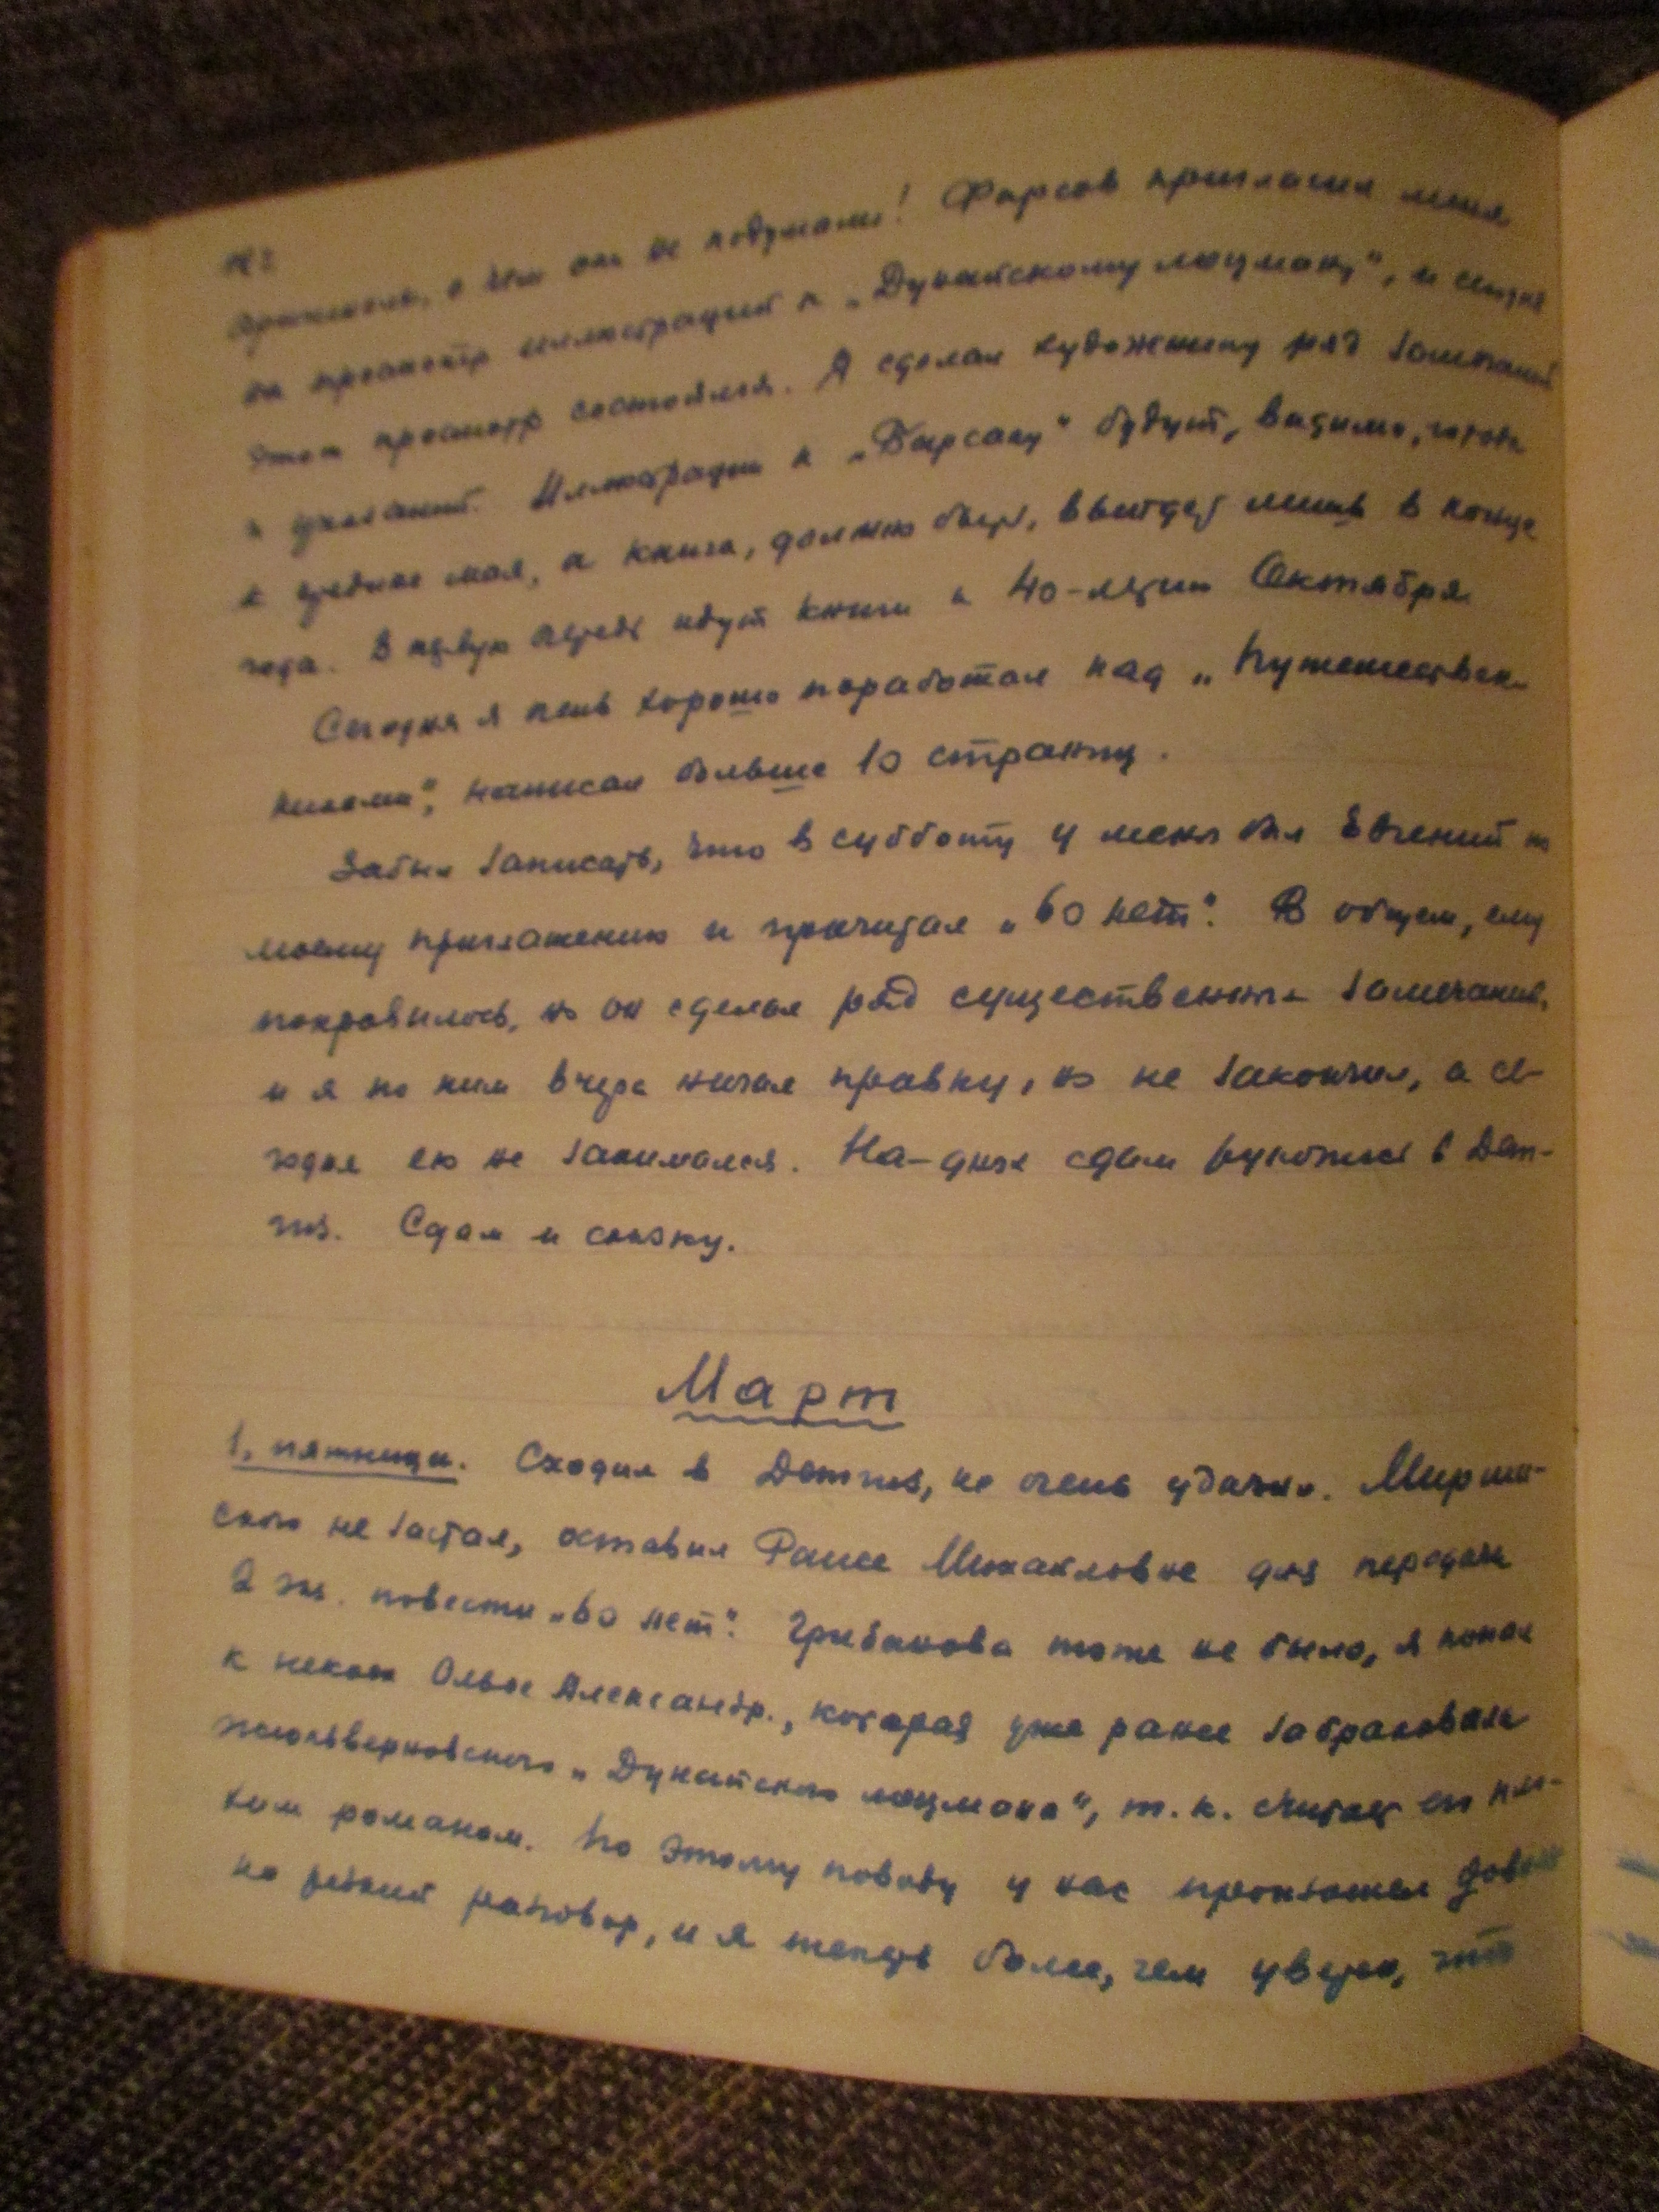 о чем они не подумали! Фирсов пригласил меня
на просмотр иллюстраций к „Дунайскому лоцману", и сегодня
этот просмотр состоялся. Я сделал художнику ряд замечаний
и указаний. Иллюстрации к „Барсаку" будут, видимо, готовы
к средине мая, а книга, должно быть, выйдет лишь в конце
года. В первую очередь идут книги к 40-летию Октября.
Сегодня я очень хорошо поработал над „Путешествен-
никами", написал больше 10 страниц.
Забыл записать, что в субботу у меня был Евгений по
моему приглашению и прочитал „60 лет". В общем, ему
понравилось, но он сделал ряд существенных замечаний,
и я по ним вчера начал правку, но не закончил, а се-
годня ею не занимался. На-днях сдам рукопись в Дет-
гиз. Сдам и сказку.
Март
1, пятница. Сходил в Детгиз, не очень удачно.
не застал, оставил Раисе Михайловне для передачи
2 экз. повести „60 лет". Грибанова тоже не было, я попал
к некоей Ольге Александр., которая уже ранее забраковала
жюльверновского „Дунайского лоцмана", т. к. считает его пло-
хим романом. По этому поводу у нас произошел доволь
но резкий разговор, и я теперь более, чем уверен, что